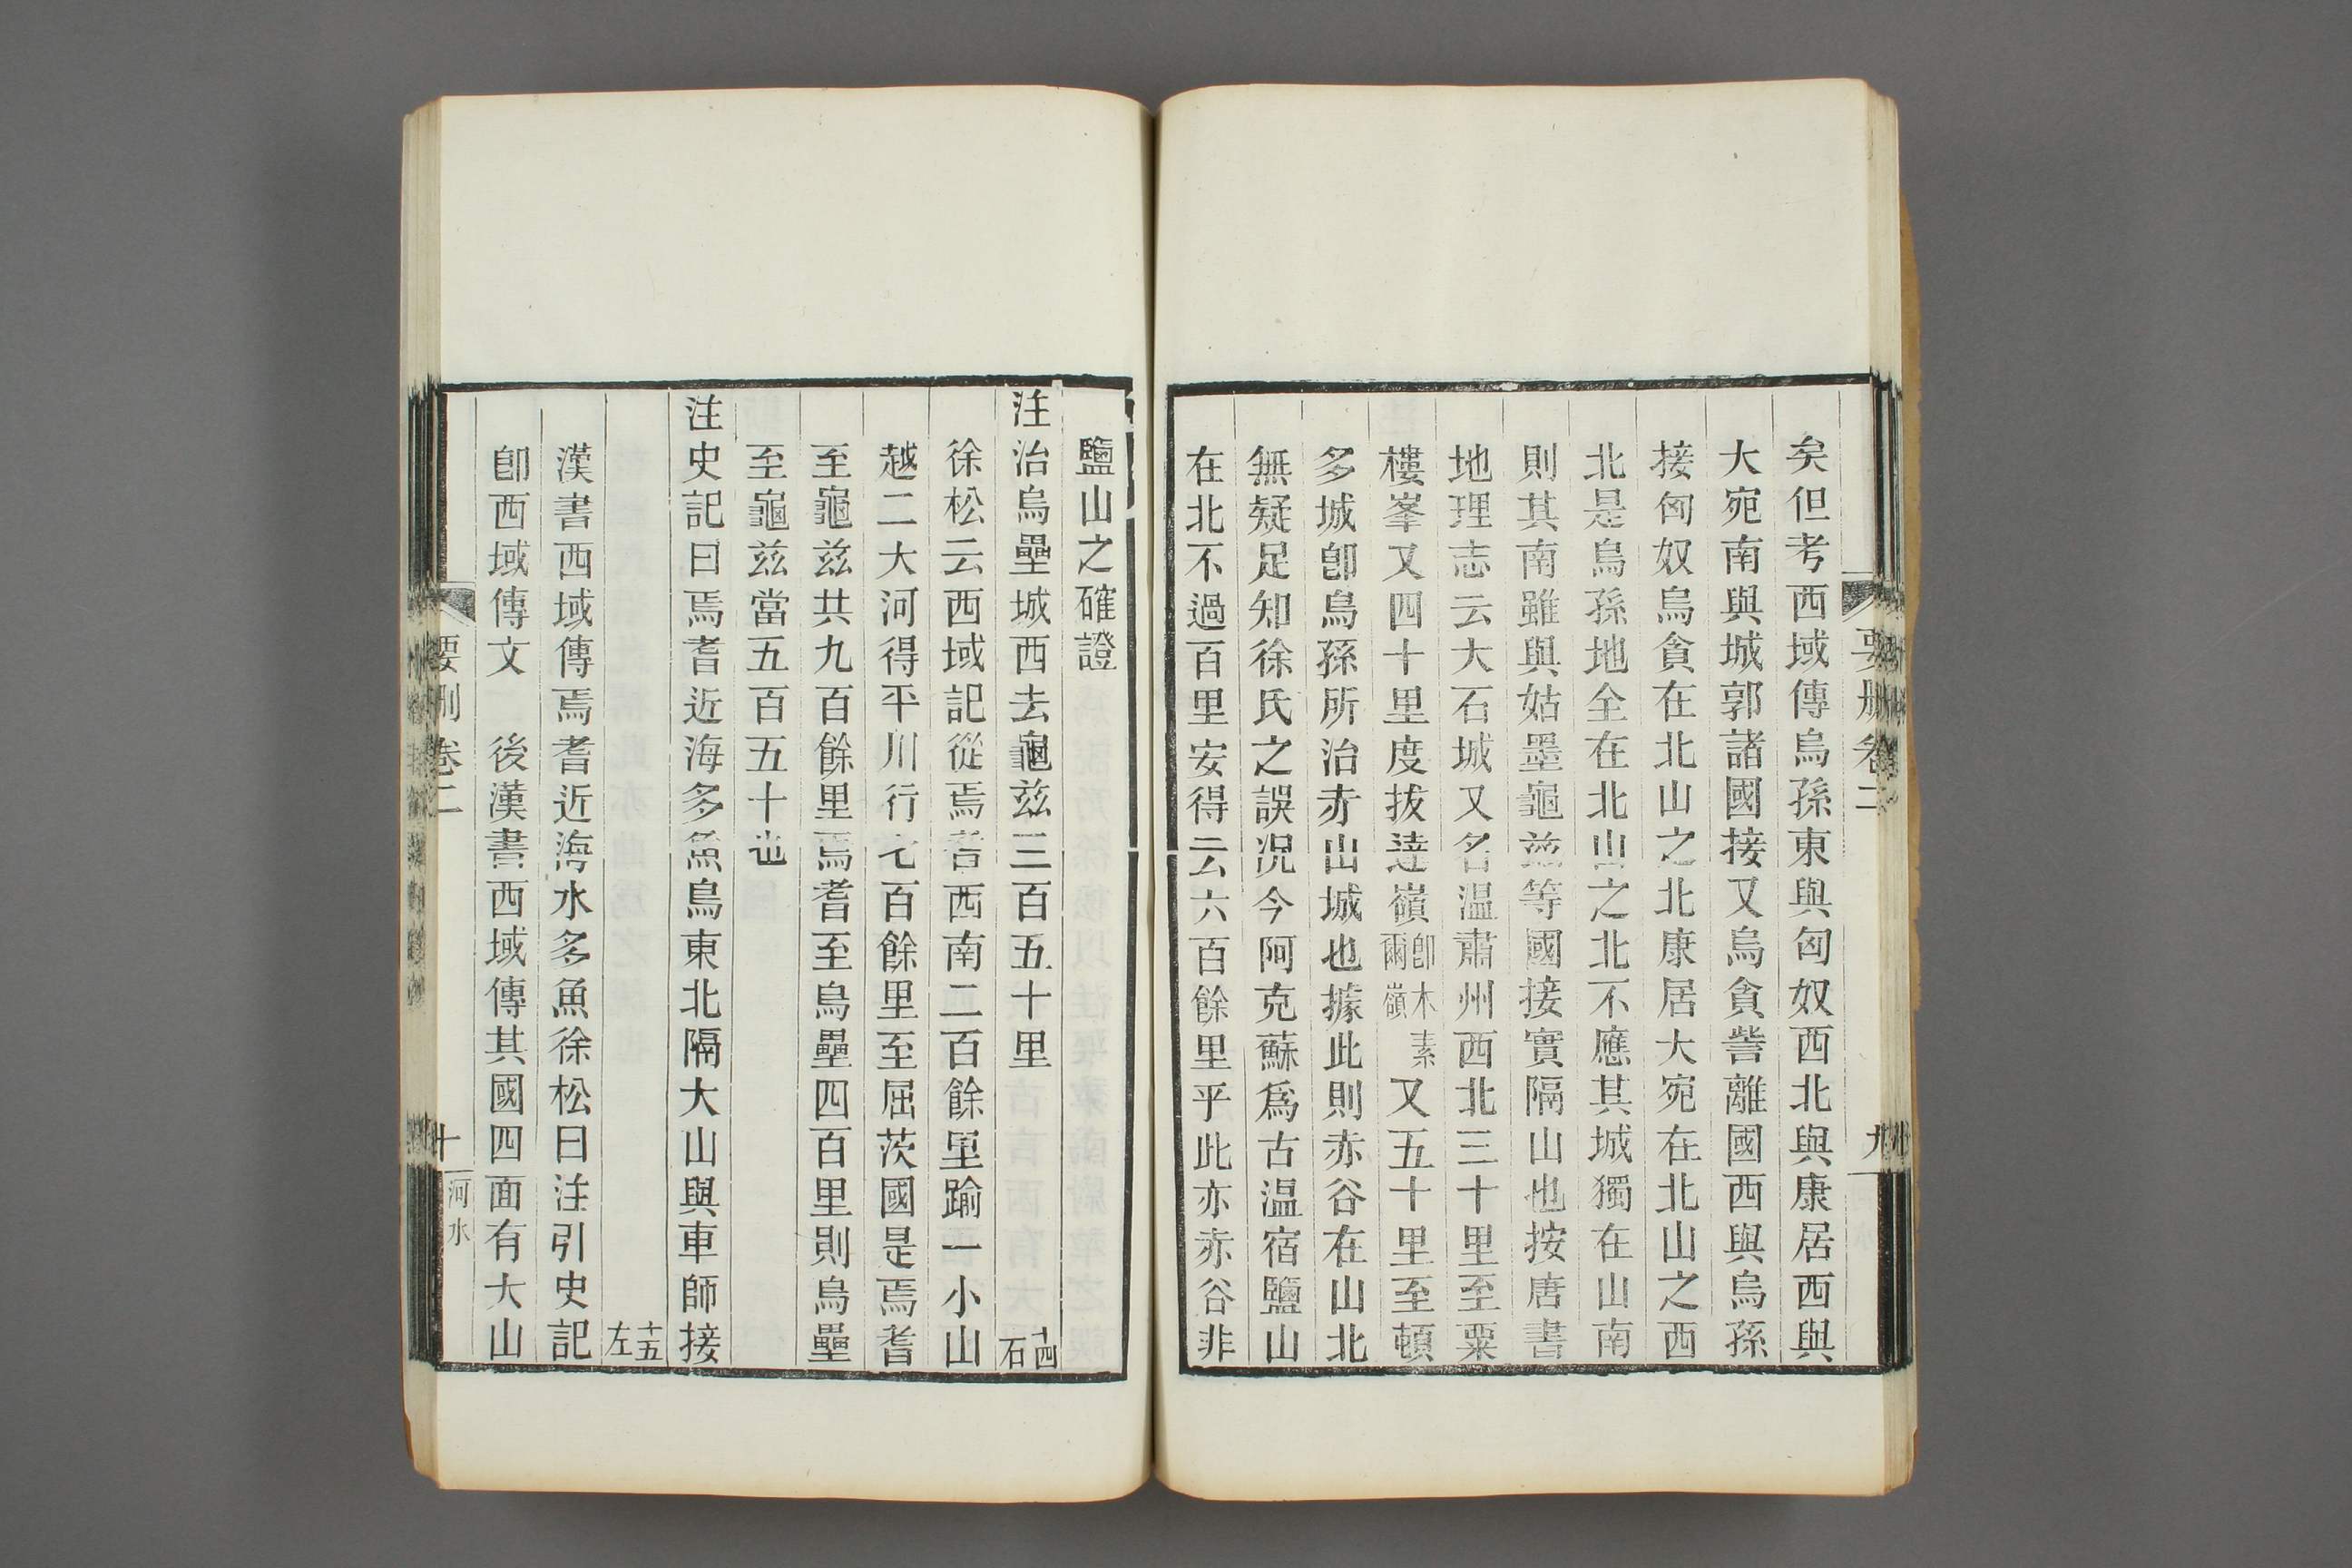 要刪卷二
九
矣但考西域傳烏孫東與匈奴西北與康居西與
大宛南與城郭諸國接又烏貪訾離國西與烏孫
接匈奴烏貪在北山之北康居大宛在北山之西
北是烏孫地全在北山之北不應其城獨在山南
則其南雖與姑墨龜茲等國接實隔山也按唐書
地理志云大石城又名温肅州西北三十里至粟
樓峯又四十里度拔達嶺卽木素爾嶺又五十里至頓
多城卽烏孫所治赤山城也據此則赤谷在山北
無疑足知徐氏之誤况今阿克蘇爲古温宿鹽山
在北不過百里安得云六百餘里乎此亦赤谷非
鹽山之確證
注治烏壘城西去龜兹三百五十里十四右
徐松云西域記從焉耆西南二百餘里踰一小山
越二大河得平川行七百餘里至屈茨國是焉耆
至龜兹共九百餘里焉耆至烏壘四百里則烏壘
至龜兹當五百五十也
注史記曰焉耆近海多魚鳥東北隔大山與車師接
十五左
漢書西域傳焉耆近海水多魚徐松曰注引史記
卽西域傳文 後漢書西域傳其國四面有大山
要刪卷二
十
河水